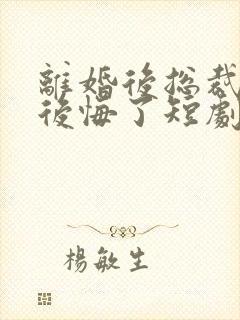 離婚後总裁
後悔了短劇
楊敏生